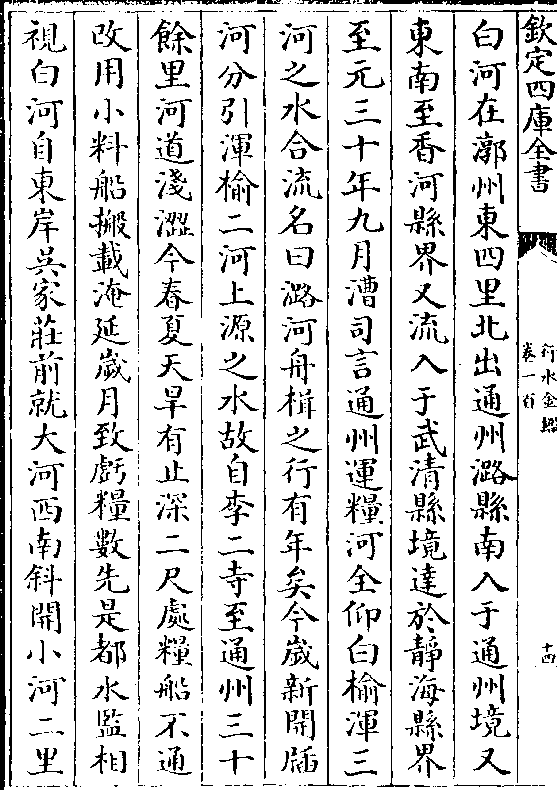 欽定四庫全書
行水金鑑
卷一百
十四
白河在漷州東四里北出通州潞縣南入于通州境又
東南至香河縣界又流入于武清縣境達於靜海縣界
至元三十年九月漕司言通州運糧河全仰白榆渾三
河之水合流名曰潞河舟楫之行有年矣今歲新開牐
河分引渾榆二河上源之水故自李二寺至通州三十
餘里河道淺澀今春夏天旱有止深二尺處糧船不通
改用小料船搬載淹延歲月致虧糧數先是都水監相
視白河自東岸吳家莊前就大河西南斜開小河二里